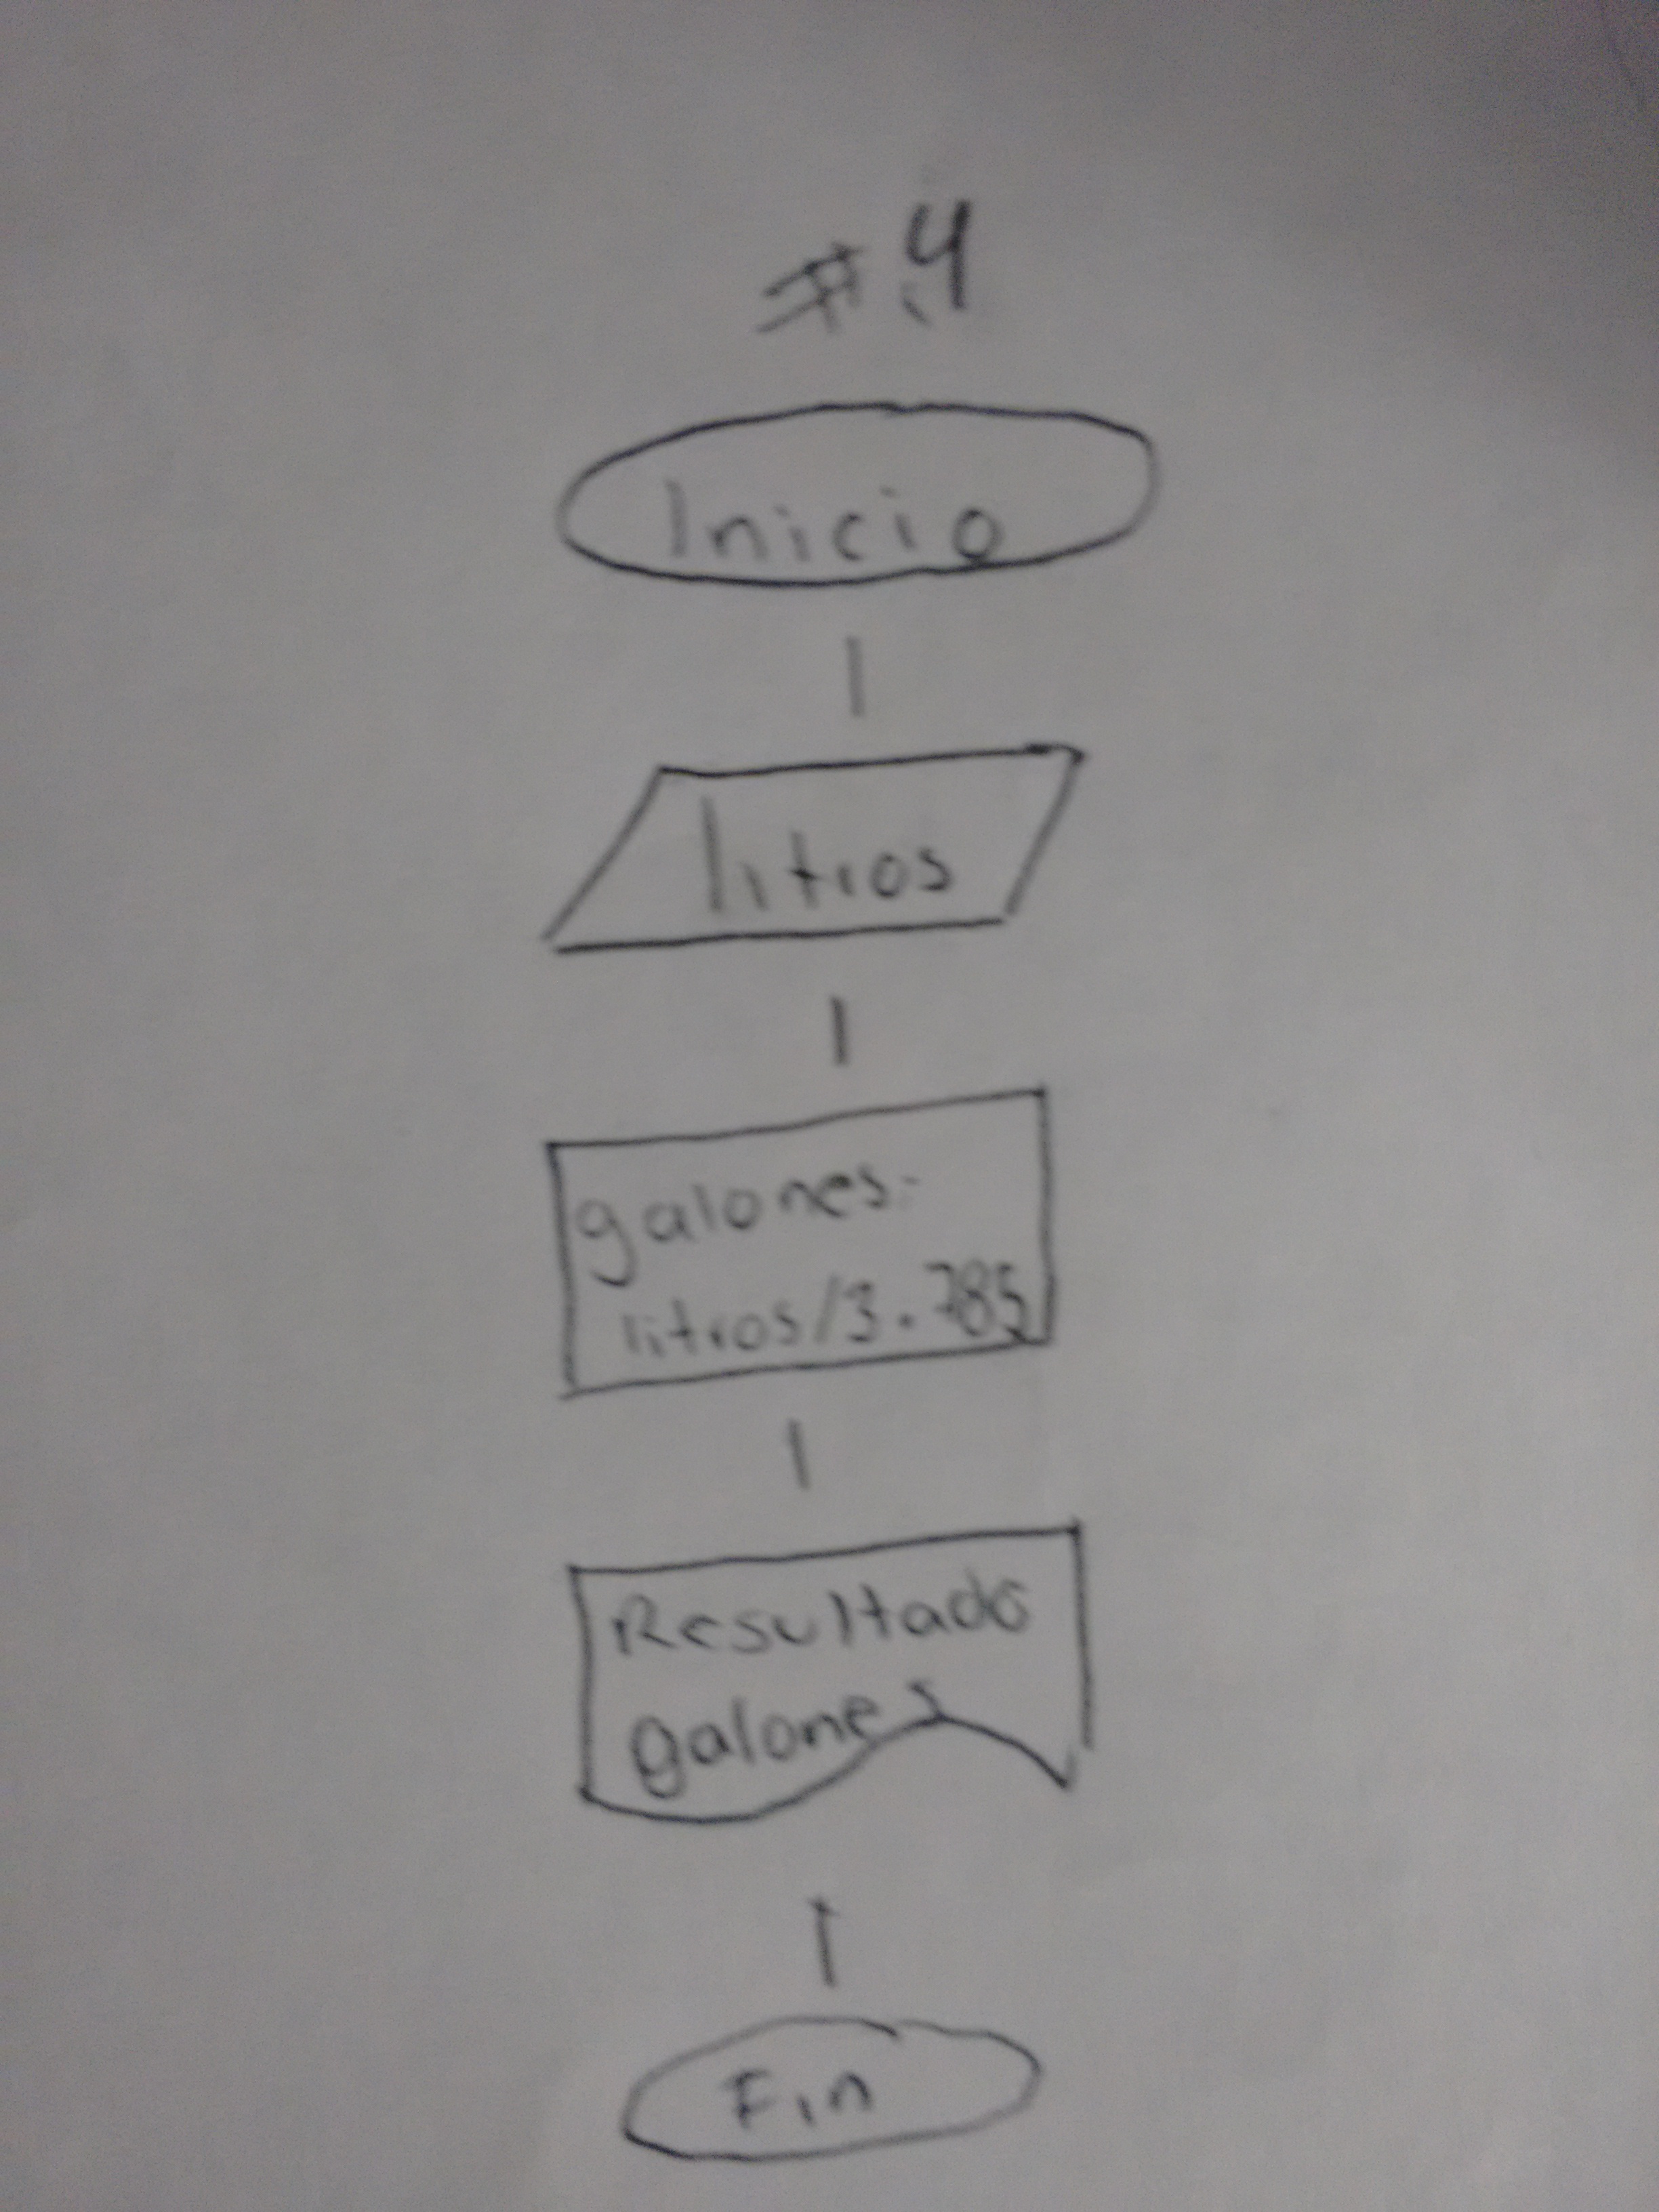 #.4
Inicio
litros
galones=
litros/3.785
Resultado
galones
Fin